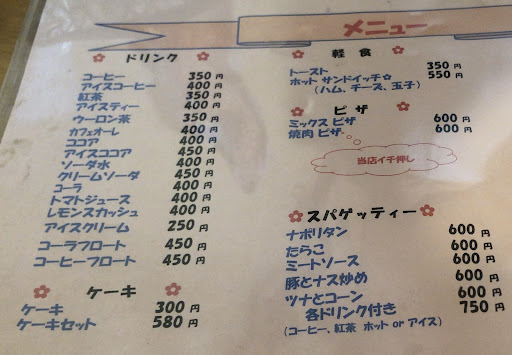 メニュー
ドリンク
コーヒー 350円
アイスコーヒー 400円
紅茶 350円
アイスティー 400円
ウーロン茶 350円
カフェオーレ 400円
ココア 400円
アイスココア 450円
ソーダ水 400円
クリームソーダ 450円
コーラ 400円
トマトジュース 400円
レモンスカッシュ 400円
アイスクリーム 250円
コーラフロート 450円
コーヒーフロート 450円
ケーキ
ケーキ 300円
ケーキセット 580円
軽食
トースト 350円
ホット サンドイッチ☆ 550円
(ハム、チーズ、玉子)
ピザ
ミックス ピザ 600円
焼肉 ピザ 600円
当店イチ押し
スパゲッティー
ナポリタン 600円
たらこ 600円
ミートソース 600円
豚とナス炒め 600円
ツナとコーン 600円
各ドリンク付き 750円
(コーヒー、紅茶 ホット or アイス)